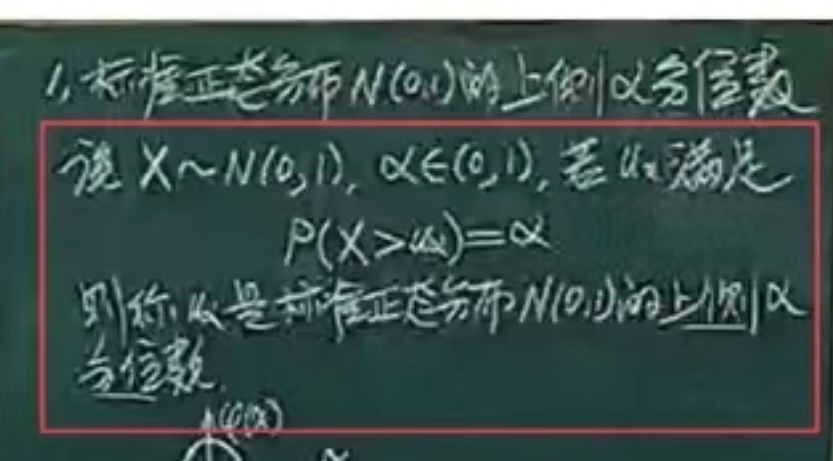 1,标准正态分布N(0,1)的上侧α分位数
设X~N(0,1),α∈(0,1),若uα满足
P(X>uα)=α
则称uα是标准正态分布N(0,1)的上侧α
分位数.
φ(x)